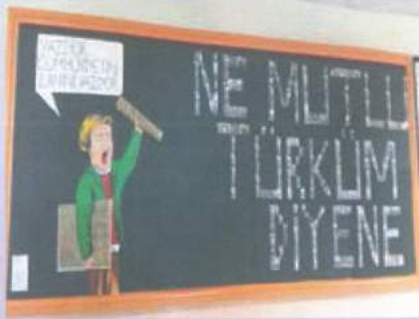 YAZIYOR
CUMHURİYETİN
İLANINI YAZIYOR
NE MUTLU
TÜRKÜM
DİYENE